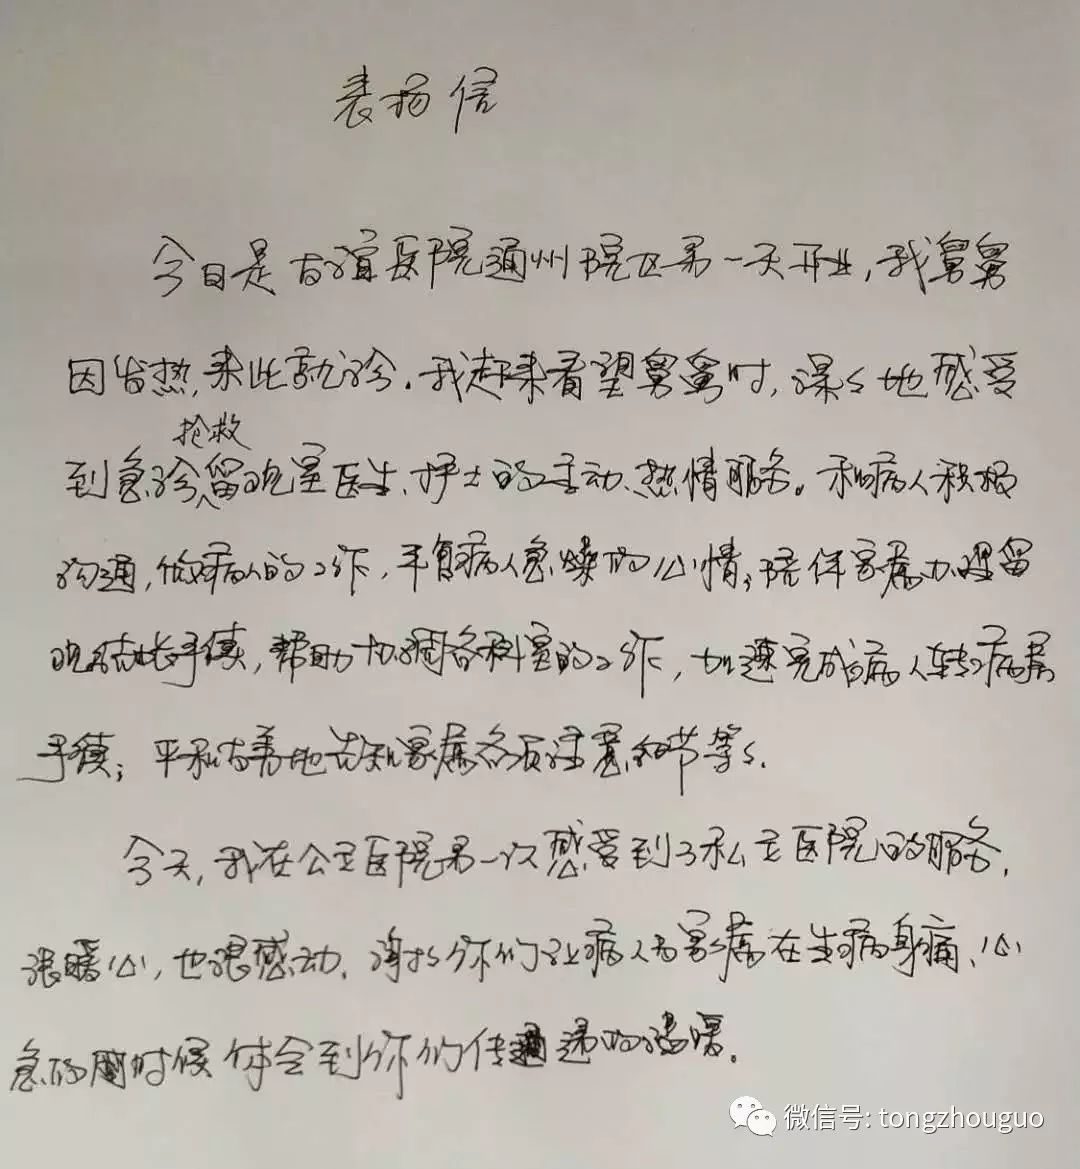 表扬信
今日是友谊医院通州院区第一天开业，我舅舅
因发热，来此就诊．我赶来看望舅舅时，深深地感受
抢救
到急诊留观室医生、护士的主动、热情服务。和病人积极
沟通，做病人的工作，平复病人急燥的心情；陪伴家属办理留
观结帐手续，帮助协调各科室的工作，加速完成病人转病房
手续；平和友善地告知家属各项注意细节等等．
今天，我在公立医院第一次感受到了私立医院的服务，
很暖心，也很感动．谢谢你们让病人和家属在生病身痛、心
急的时候体会到你们传递的温暖。
微信号: tongzhouguo